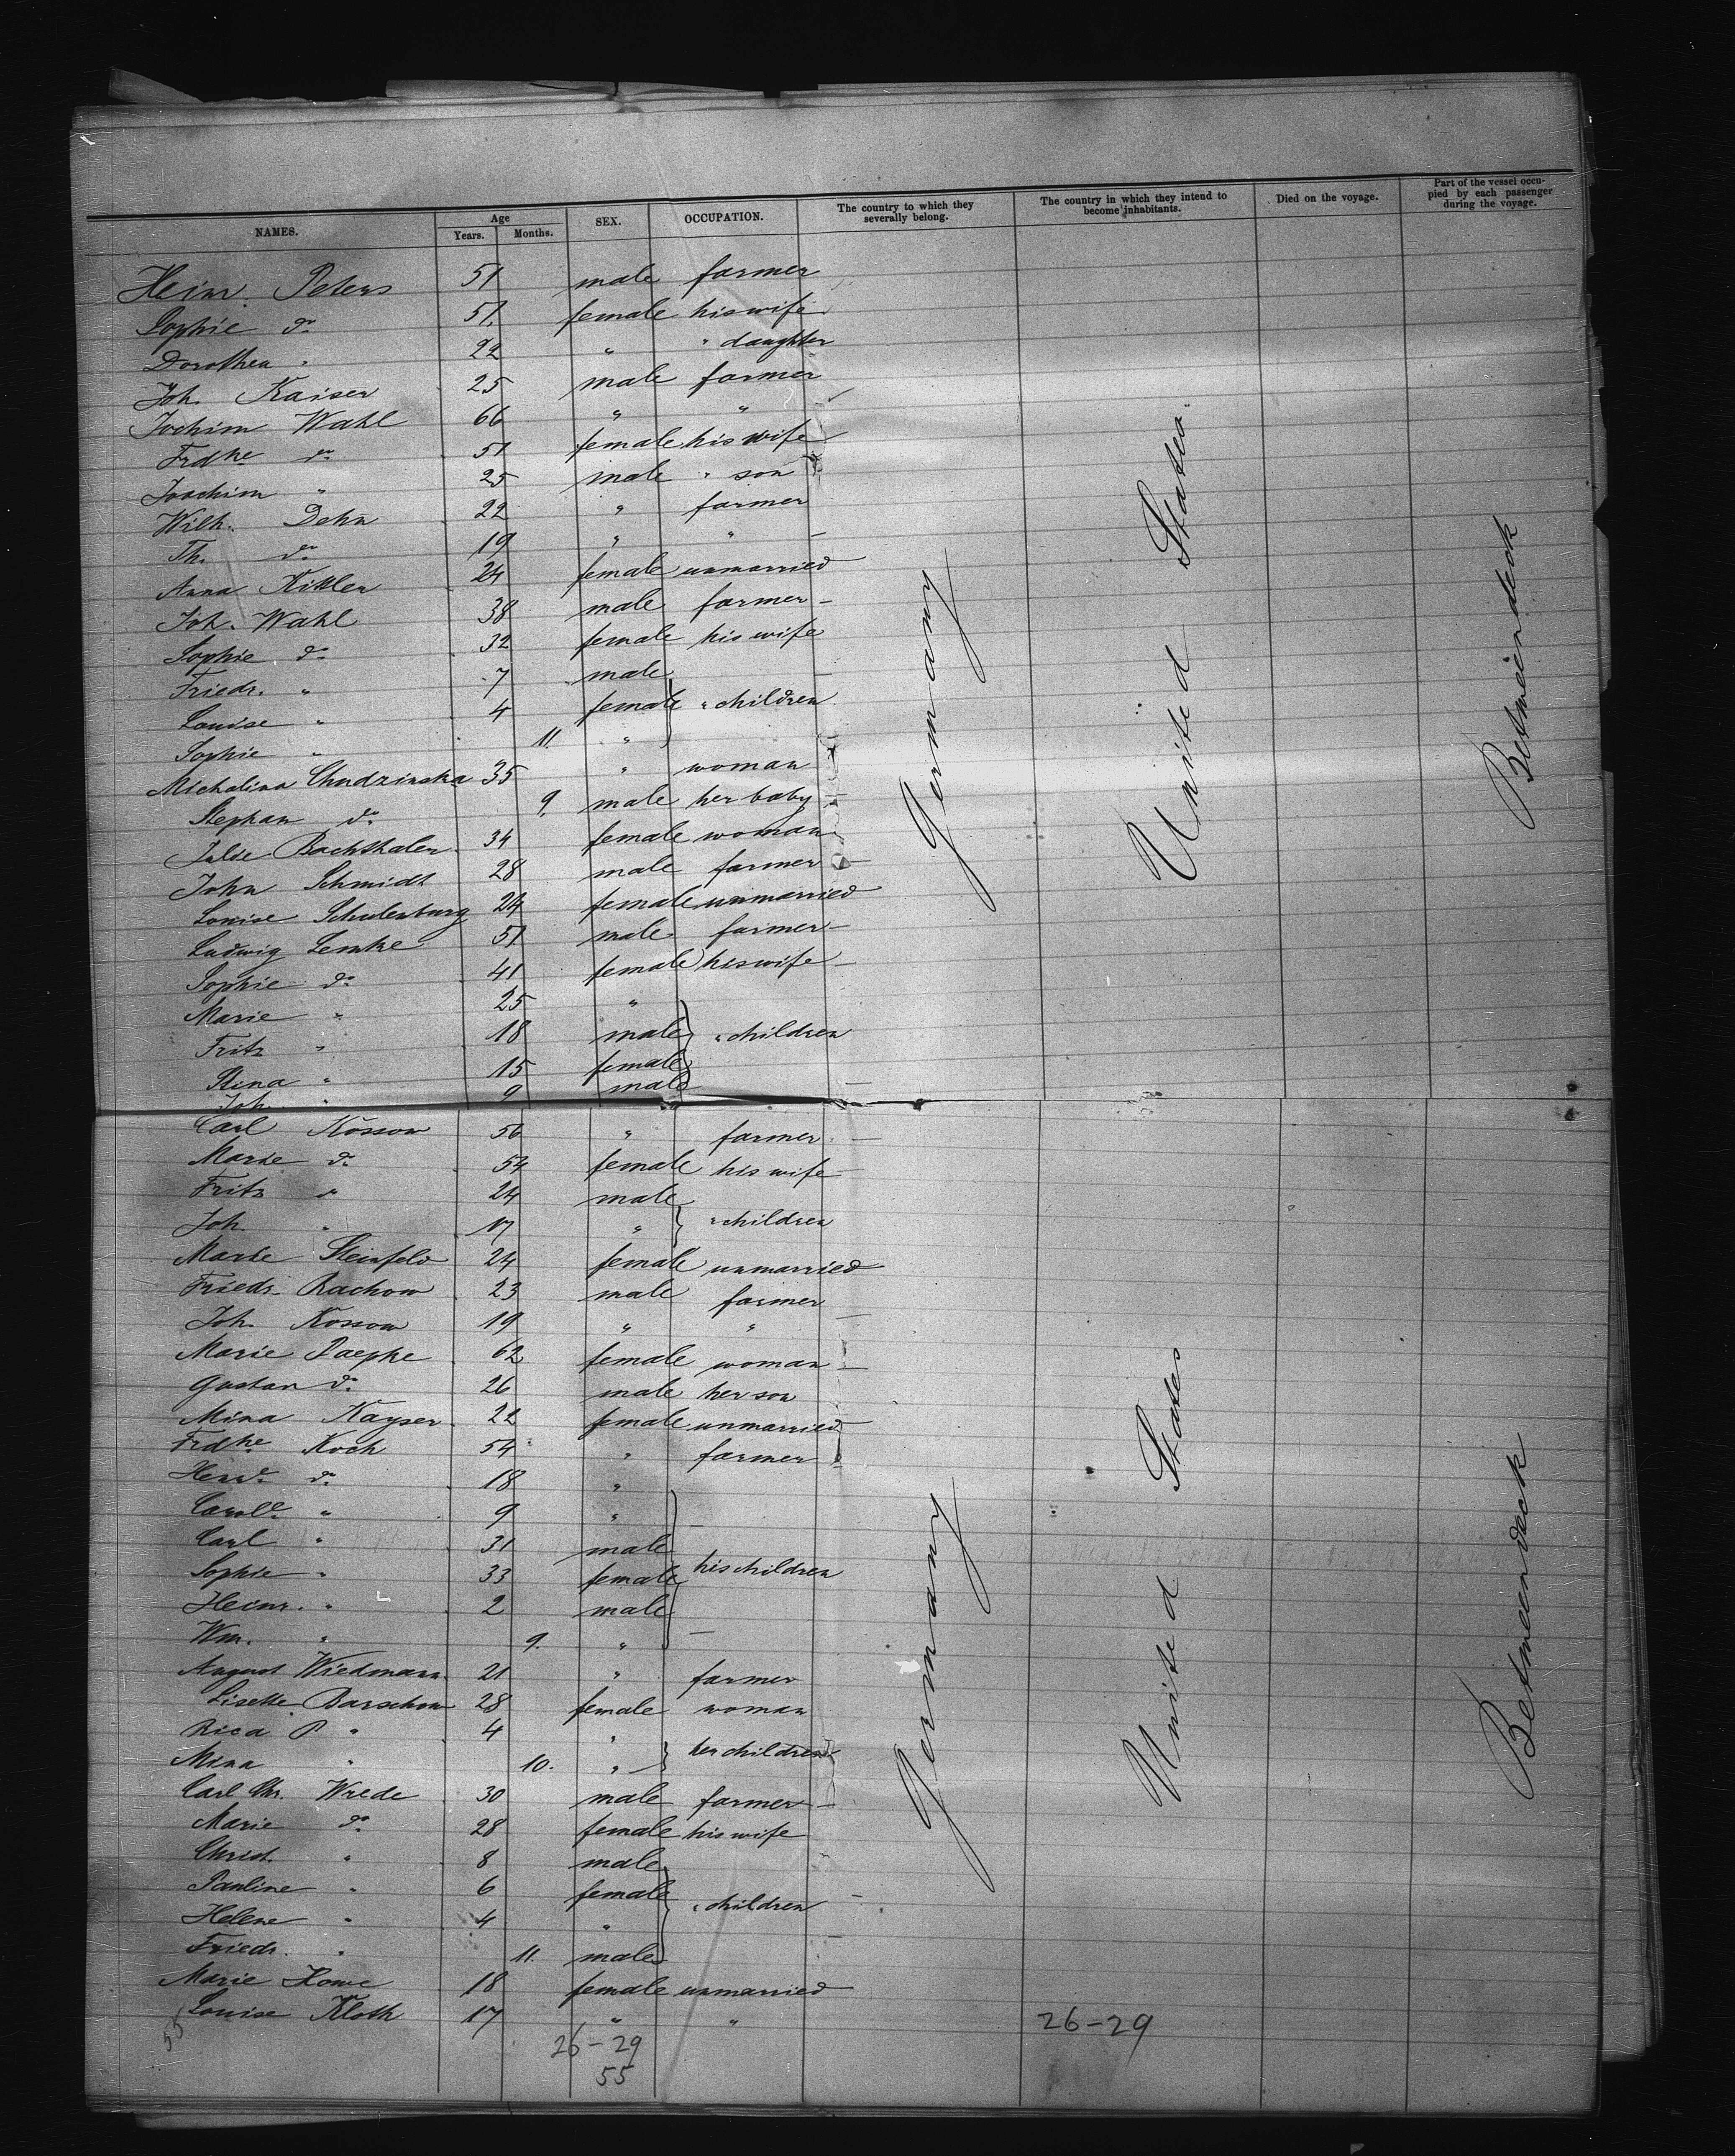 NAMES. Age Years. Months. SEX. OCCUPATION. The country to which they severally belong. The country in which they intend to become inhabitants. Died on the voyage. Part of the vessel occupied by each passenger during the voyage.
Heinr. Peters 51 male farmer
Sophie do 51 female his wife
Dorothea " 22 " " daughter
Joh. Kaiser 25 male farmer
Jochim Wahl 66 " "
Frdke do 51 female his wife
Joachim " 25 male " son
Wilh. Dehn 22 " farmer
Th. do 19 " "
Anna Kittler 24 female unmarried
Joh. Wahl 38 male farmer
Sophie do 32 female his wife
Friedr. " 7 male
Louise " 4 female " children
Sophie " 11. "
Michalina Chudzinska 35 " woman
Stephan do 9. male her baby
Bachthaler 34 female woman
John Schmidt 28 male farmer
Louise Schulenburg 24 female unmarried
Ludwig Lemke 51 male farmer
Sophie do 41 female his wife
Marie " 25 "
Fritz " 18 male " children
Stina " 15 female
Joh. " 9 male
Carl Kossow 56 " farmer
Marie do 54 female his wife
Fritz " 24 male
Joh " 17 " " children
Marie Steinfeld 24 female unmarried
Friedr. Rachow 23 male farmer
Joh. Kossow 19 " "
Marie Paepke 62 female woman
Gustav do 26 male her son
Mina Kayser 22 female unmarried
Frdke Koch 54 " farmer
Henrte do 18 "
Carole " 9 "
Carl " 31 male
Sophie " 33 female his children
Heinr. " 2 male
Wm. " 9. "
August Wiedmann 21 " farmer
Lisette Barschow 28 female woman
Rica P " 4 "
Mina " 10. " her children
Carl Chr. Wrede 30 male farmer
Marie do 28 female his wife
Christ. " 8 male
Pauline " 6 female
Helene " 4 " " children
Friedr. " 11. male
Marie Howe 18 female unmarried
Louise Kloth 17 " "
Germany
United States
Betweendeck
Germany
United States
Betweendeck
55
26-29
55
26-29